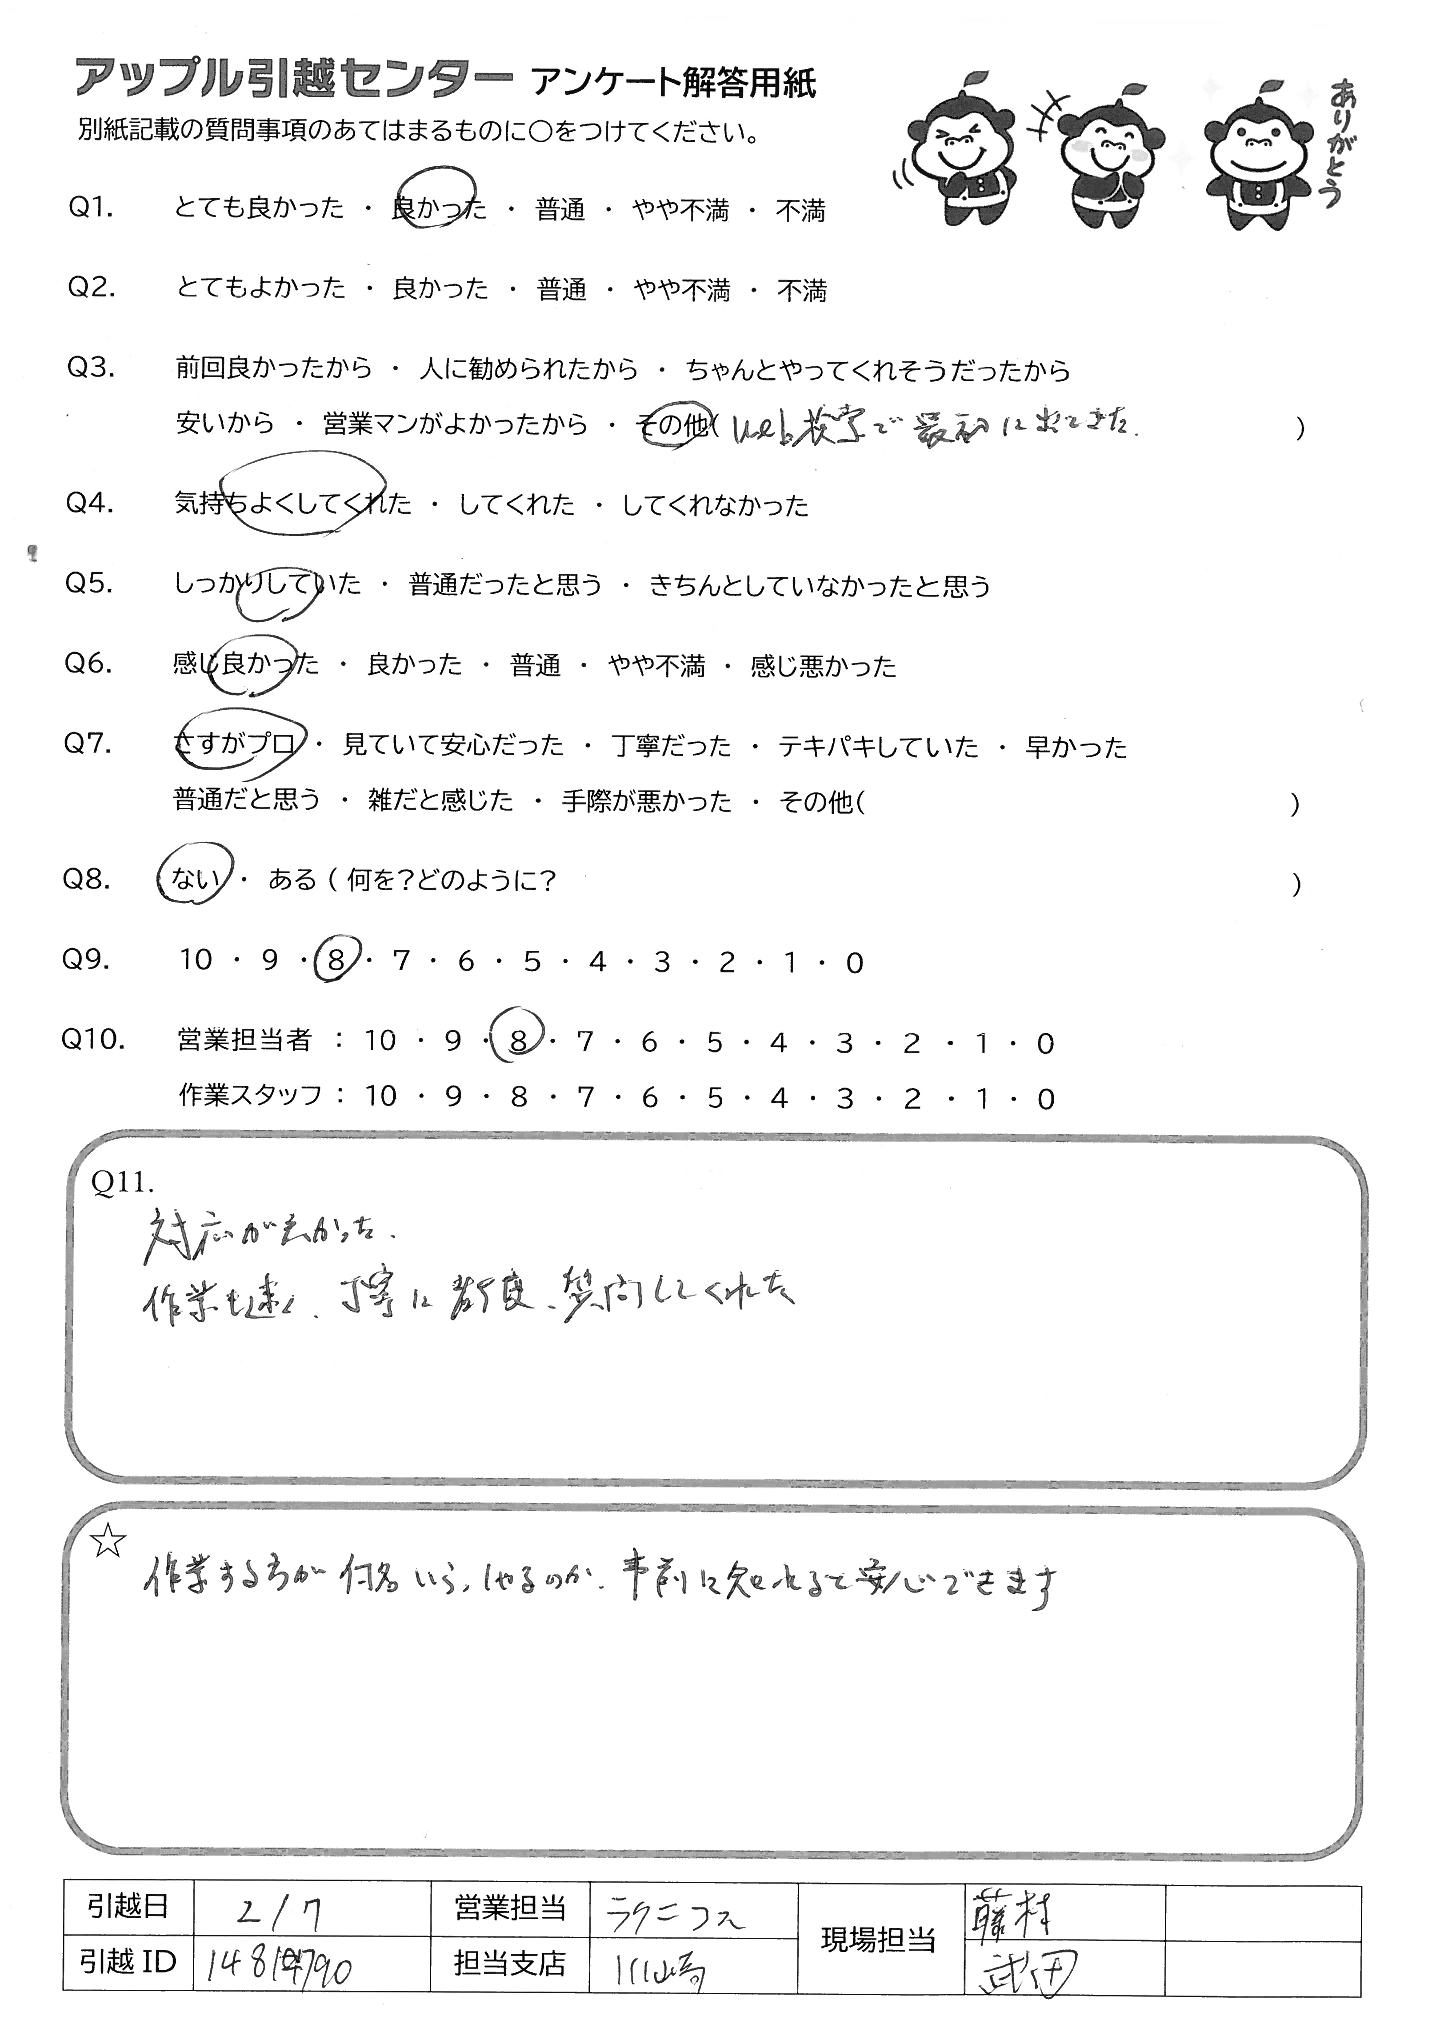 アップル引越センター アンケート解答用紙
別紙記載の質問事項のあてはまるものに○をつけてください。
ありがとう
Q1. とても良かった ・ 良かった ・ 普通 ・ やや不満 ・ 不満
Q2. とてもよかった ・ 良かった ・ 普通 ・ やや不満 ・ 不満
Q3. 前回良かったから ・ 人に勧められたから ・ ちゃんとやってくれそうだったから
安いから ・ 営業マンがよかったから ・ その他( Web検索で最初に出てきた. )
Q4. 気持ちよくしてくれた ・ してくれた ・ してくれなかった
Q5. しっかりしていた ・ 普通だったと思う ・ きちんとしていなかったと思う
Q6. 感じ良かった ・ 良かった ・ 普通 ・ やや不満 ・ 感じ悪かった
Q7. さすがプロ ・ 見ていて安心だった ・ 丁寧だった ・ テキパキしていた ・ 早かった
普通だと思う ・ 雑だと感じた ・ 手際が悪かった ・ その他( )
Q8. ない ・ ある ( 何を?どのように? )
Q9. 10 ・ 9 ・ 8 ・ 7 ・ 6 ・ 5 ・ 4 ・ 3 ・ 2 ・ 1 ・ 0
Q10. 営業担当者 : 10 ・ 9 ・ 8 ・ 7 ・ 6 ・ 5 ・ 4 ・ 3 ・ 2 ・ 1 ・ 0
作業スタッフ : 10 ・ 9 ・ 8 ・ 7 ・ 6 ・ 5 ・ 4 ・ 3 ・ 2 ・ 1 ・ 0
Q11.
対応が良かった.
作業も速く、丁寧に都度、質問してくれた
☆
作業する方が何名いらっしゃるのか、事前に知れると安心できます
引越日 2/7 営業担当 ラクニコス 現場担当 藤村
引越 ID 担当支店 川崎 武田